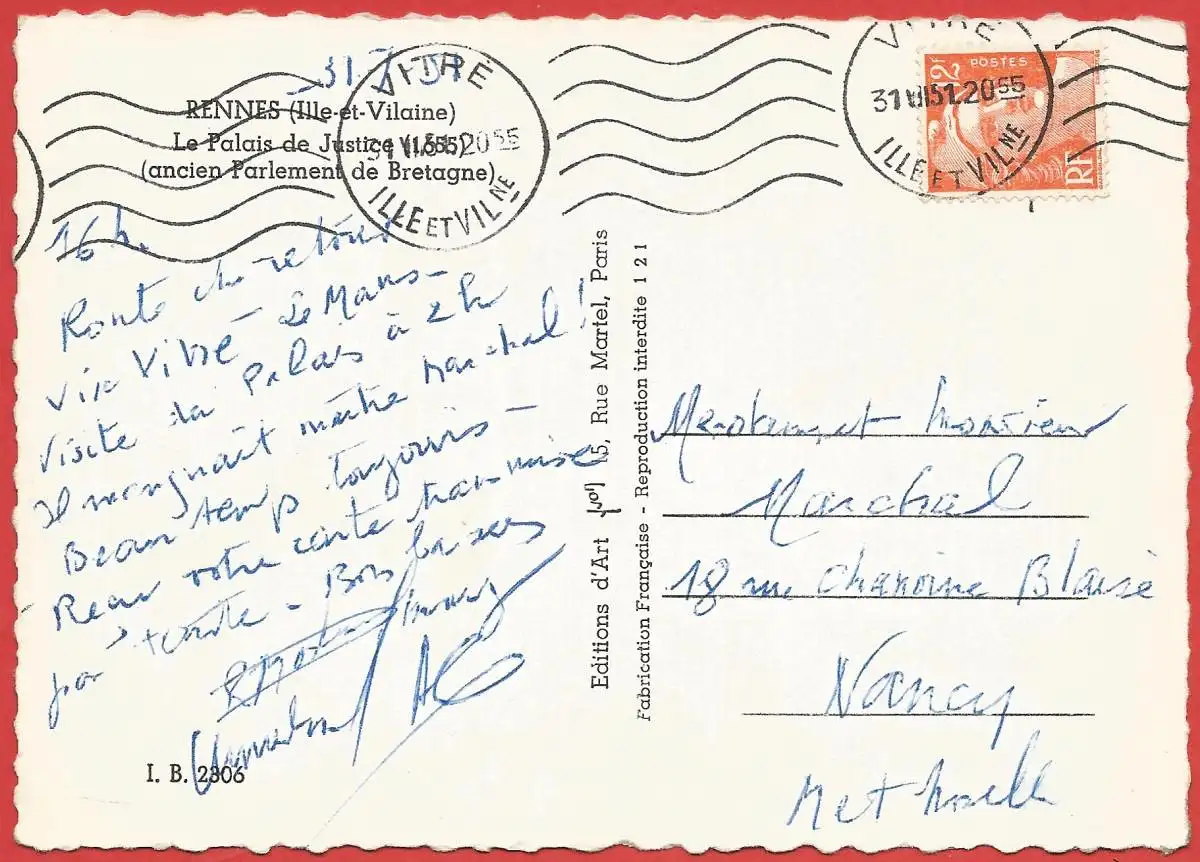 31.7.51
RENNES (Ille-et-Vilaine)
Le Palais de Justice (1655)
(ancien Parlement de Bretagne)
VITRÉ
31 VII 51. 20 55
ILLE ET VILNE
VITRÉ
31 VII 51. 20 55
ILLE ET VILNE
POSTES
12F
RF
16 h.
Route du retour
via Vitré - Le Mans -
Visite du Palais à 2h
Il manquait maître Marchal !
Beau temps toujours -
Reçu votre carte transmise
par - Bons baisers
Editions d'Art "Jos" 15, Rue Martel, Paris
Fabrication Française - Reproduction interdite 121
Monsieur
Marchal
18 rue Chanoine Blaise
Nancy
Met Moselle
I. B. 2306